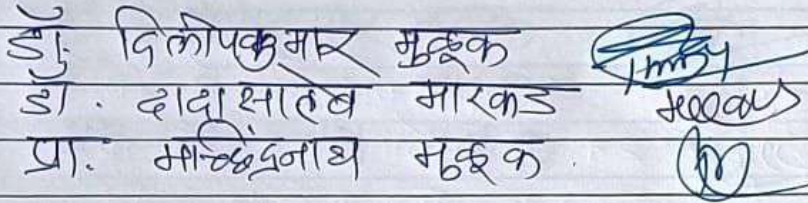 डॉ. दिलीपकुमार मुळूक
डॉ. दादासाहेब मारकड
प्रा. मच्छिंद्रनाथ मुळूक.